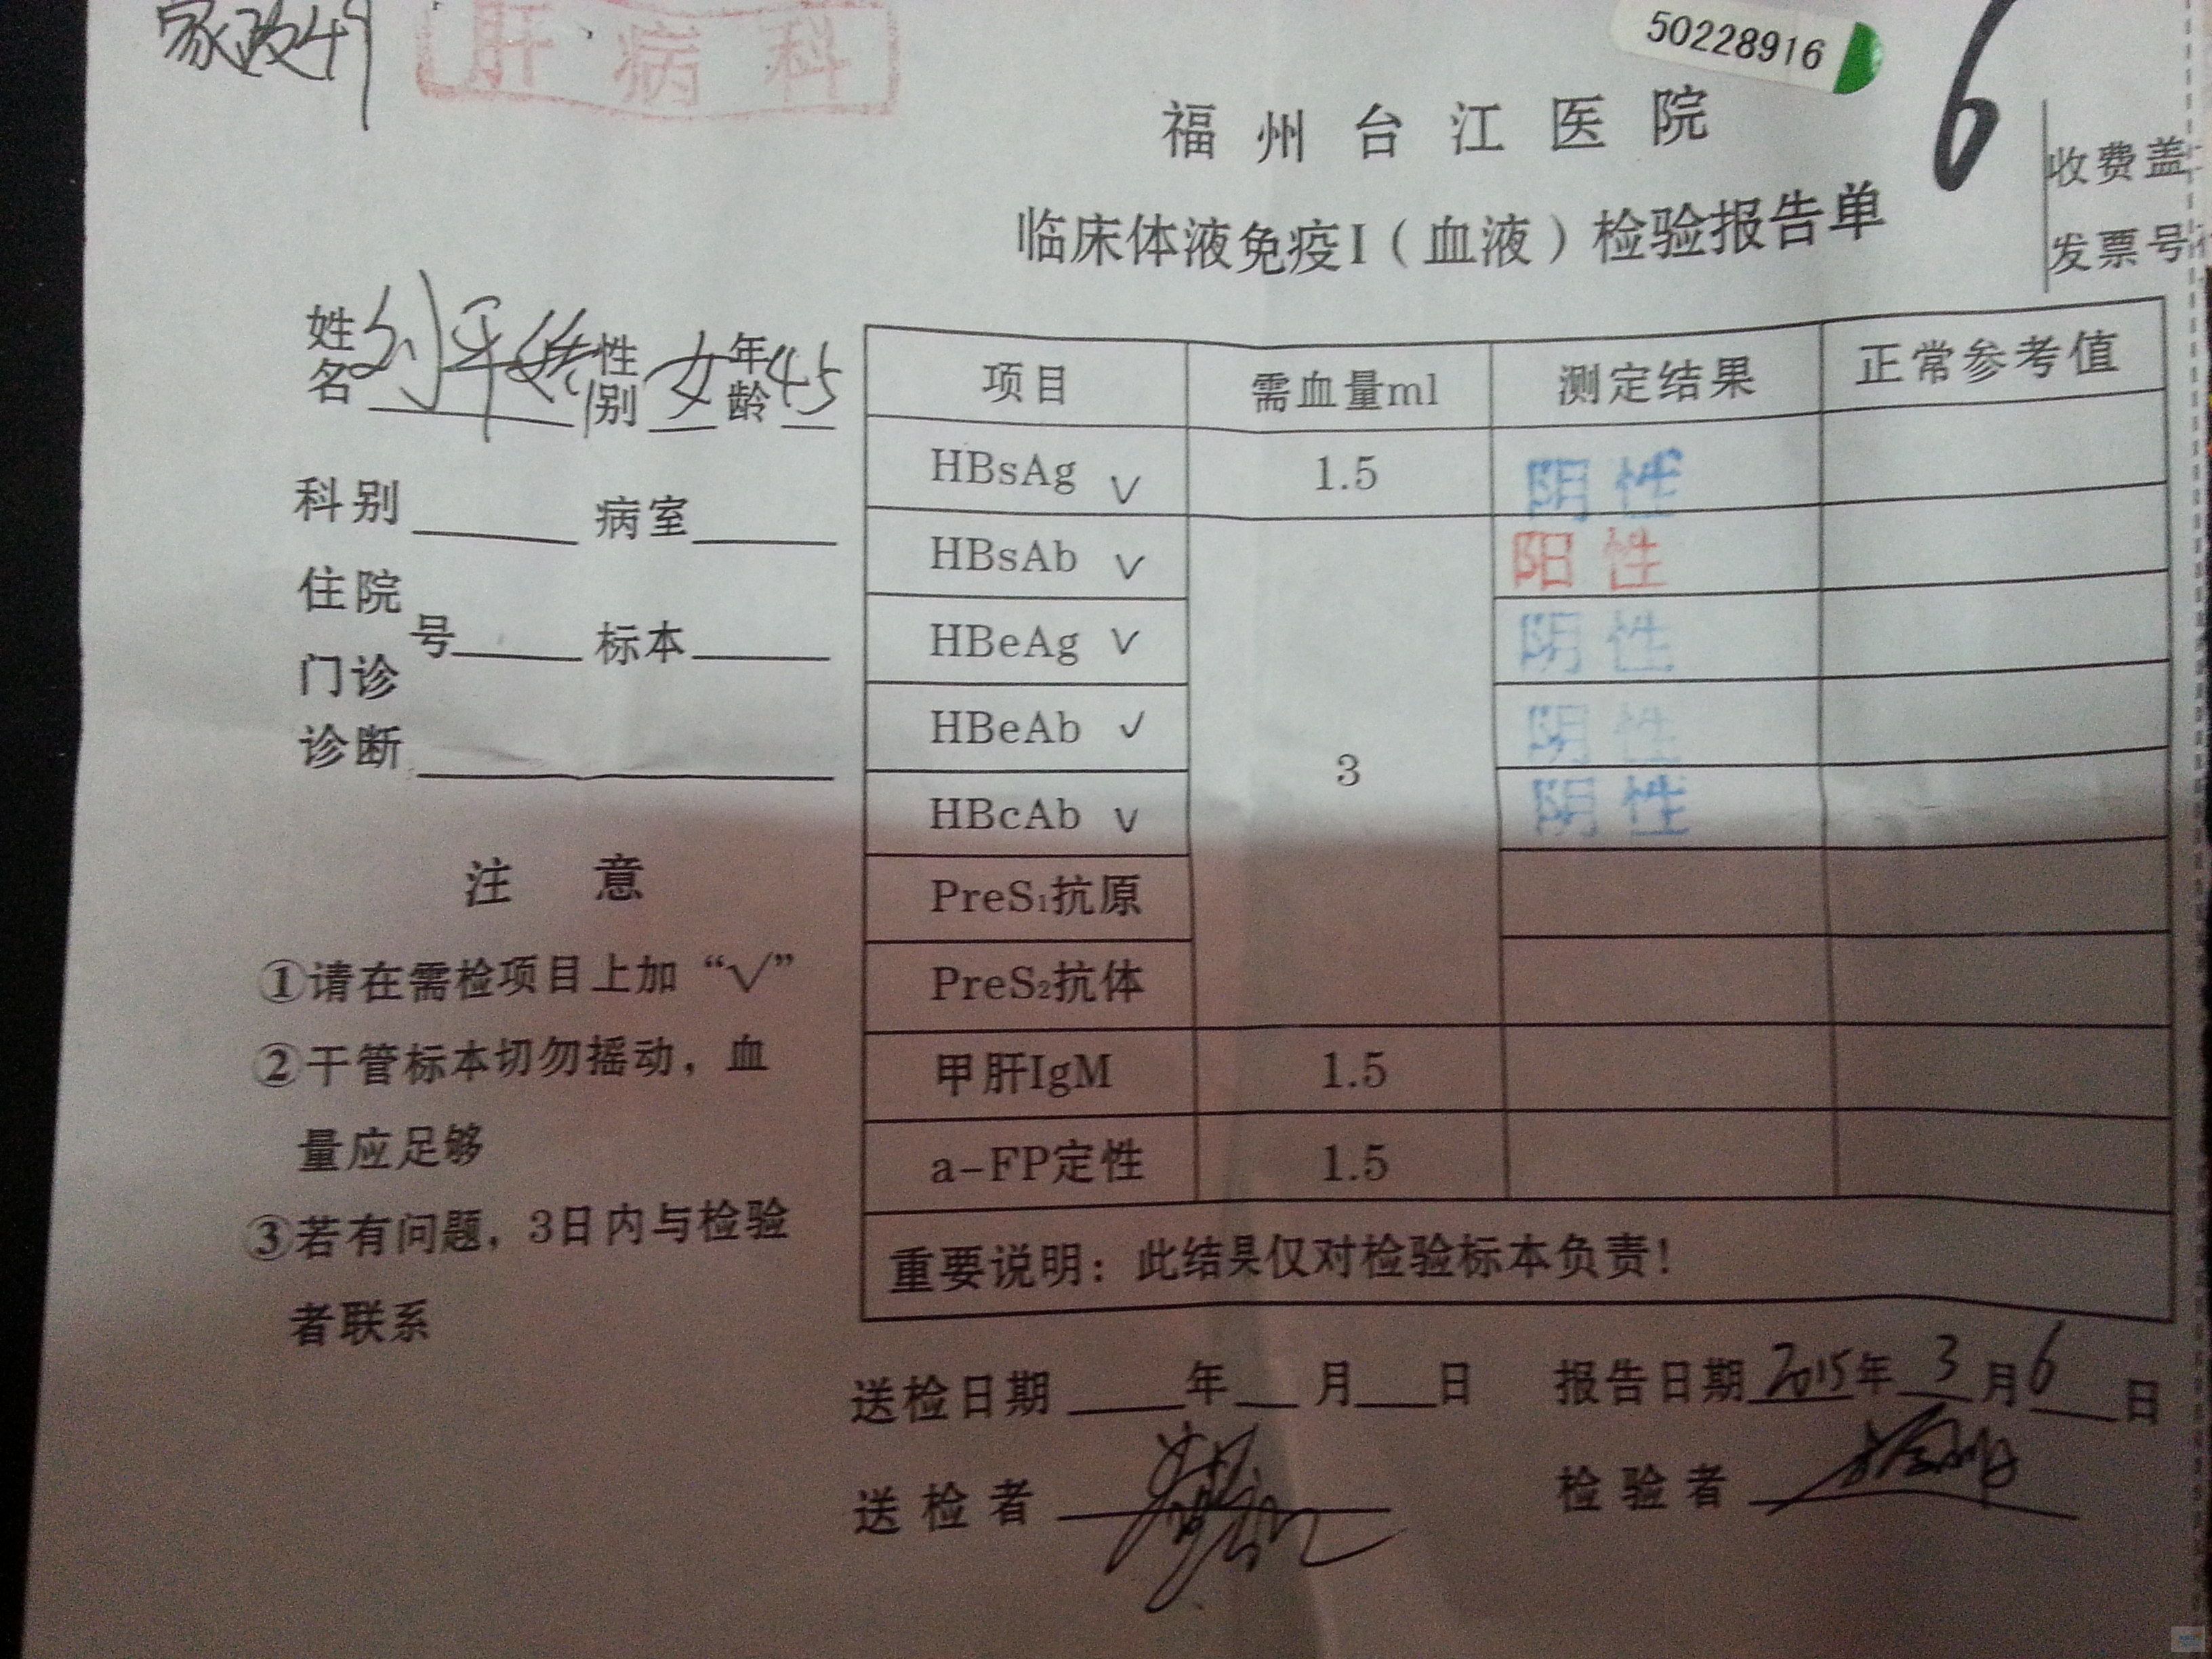 家政
肝病科
50228916
6
福州台江医院
临床体液免疫I（血液）检验报告单
收费盖
发票号
姓名 刘平 性别 女 年龄 45
科别 病室
住院
门诊
号 标本
诊断
注意
①请在需检项目上加“√”
②干管标本切勿摇动，血
量应足够
③若有问题，3日内与检验
者联系
项目 需血量ml 测定结果 正常参考值
HBsAg √ 1.5 阴性
HBsAb √ 阳性
HBeAg √ 阴性
HBeAb √ 3 阴性
HBcAb √ 阴性
PreS₁抗原
PreS₂抗体
甲肝IgM 1.5
a-FP定性 1.5
重要说明：此结果仅对检验标本负责！
送检日期 年 月 日 报告日期 2015年 3月 6日
送检者 检验者